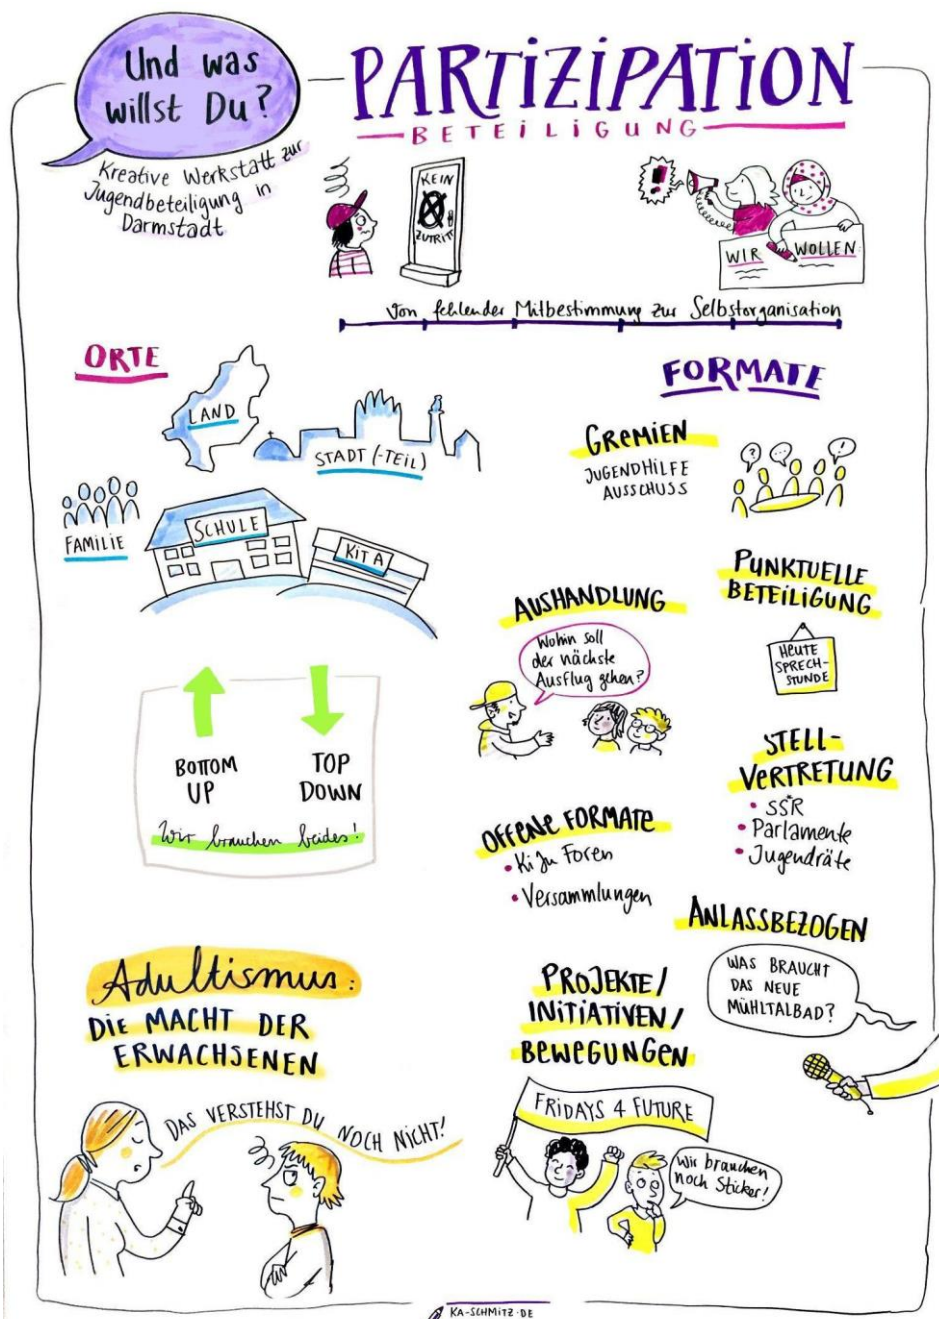 Und was
willst Du?
Kreative Werkstatt zur
Jugendbeteiligung in
Darmstadt
PARTIZIPATION
BETEILIGUNG
KEIN
ZUTRITT
WIR WOLLEN:
Von fehlender Mitbestimmung zur Selbstorganisation
ORTE
LAND
STADT (-TEIL)
FAMILIE
SCHULE
KITA
BOTTOM
UP
TOP
DOWN
Wir brauchen beides!
Adultismus:
DIE MACHT DER
ERWACHSENEN
DAS VERSTEHST DU NOCH NICHT!
FORMATE
GREMIEN
JUGENDHILFE
AUSSCHUSS
? ... !
PUNKTUELLE
BETEILIGUNG
HEUTE
SPRECH-
STUNDE
AUSHANDLUNG
Wohin soll
der nächste
Ausflug gehen?
STELL-
VERTRETUNG
• SSR
• Parlamente
• Jugendräte
OFFENE FORMATE
• KiJu Foren
• Versammlungen
ANLASSBEZOGEN
WAS BRAUCHT
DAS NEUE
MÜHLTALBAD?
PROJEKTE/
INITIATIVEN/
BEWEGUNGEN
FRIDAYS 4 FUTURE
Wir brauchen
noch Sticker!
KA-SCHMITZ.DE